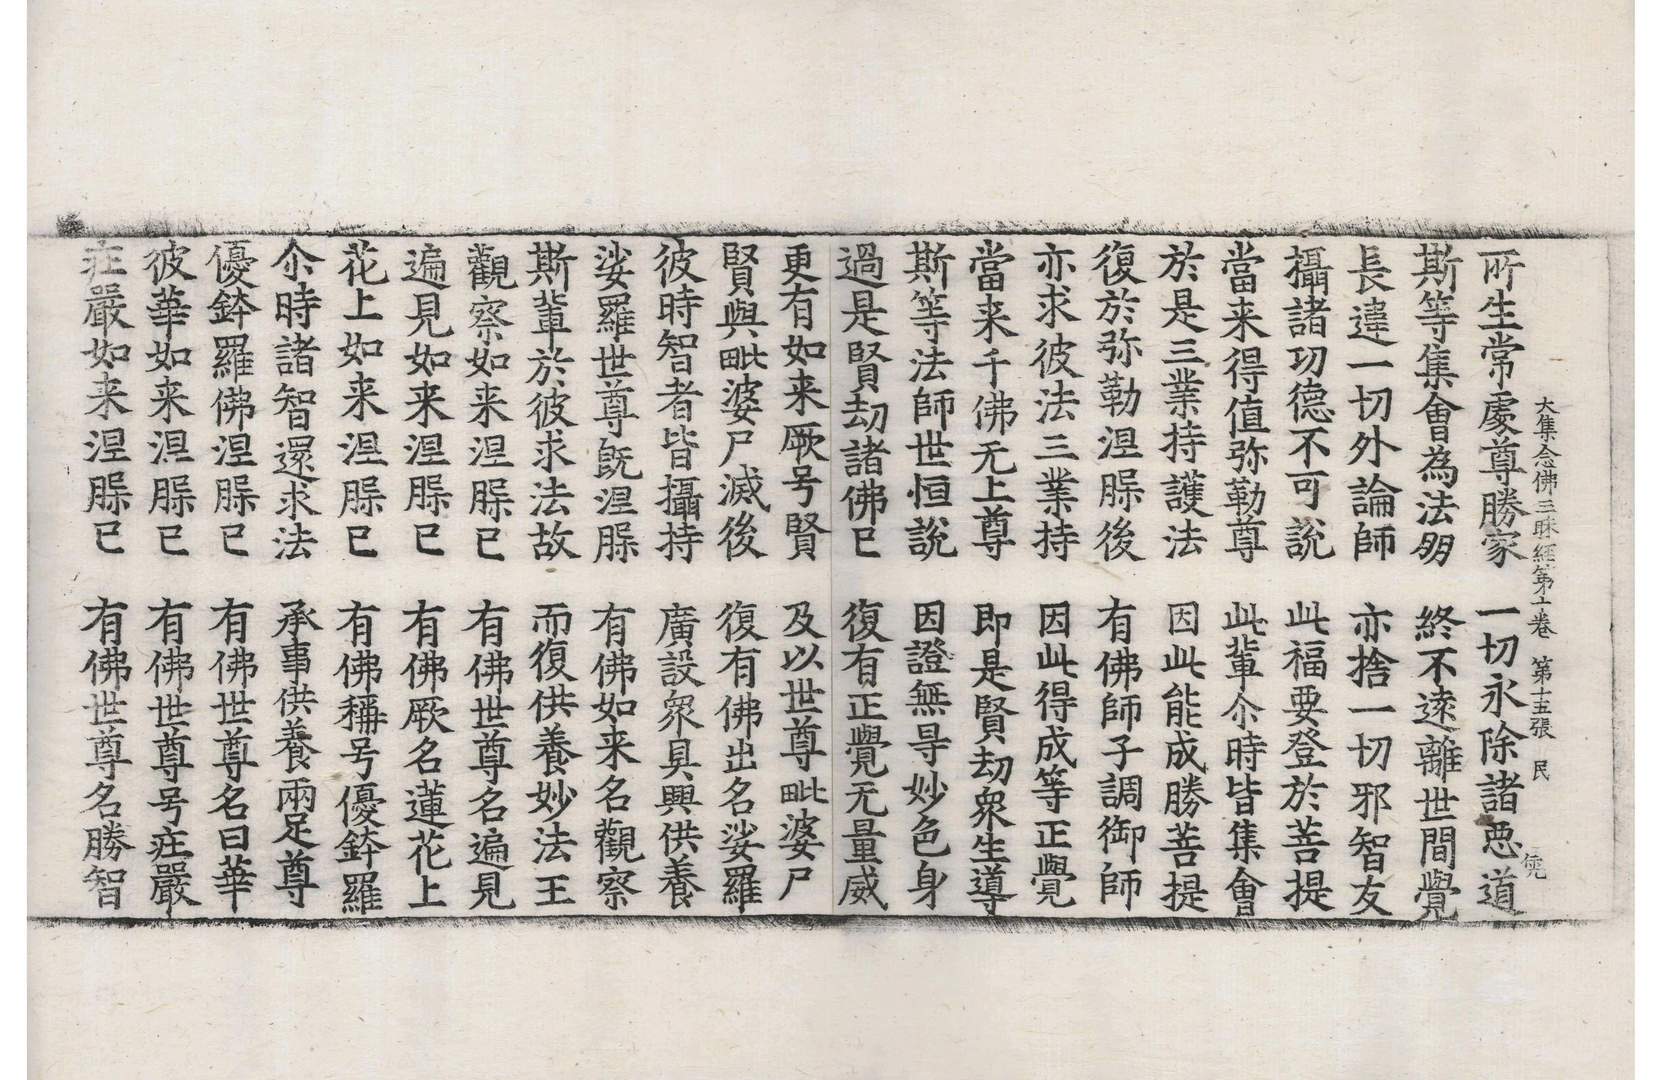 大集念佛三昧經第十卷　第十五張　民
所生常處尊勝家　一切永除諸惡道
斯等集會為法朋　終不遠離世間覺
長違一切外論師　亦捨一切邪智友
攝諸功德不可說　此福要登於菩提
當来得值弥勒尊　此輩尒時皆集會
於是三業持護法　因此能成勝菩提
復於弥勒涅槃後　有佛師子調御師
亦求彼法三業持　因此得成等正覺
當来千佛无上尊　即是賢劫衆生導
斯等法師世恒說　因證無㝵妙色身
過是賢劫諸佛已　復有正覺无量威
更有如来厥号賢　及以世尊毗婆尸
賢與毗婆尸滅後　復有佛出名娑羅
彼時智者皆攝持　廣設衆具興供養
娑羅世尊既涅槃　有佛如来名觀察
斯輩於彼求法故　而復供養妙法王
觀察如来涅槃已　有佛世尊名遍見
遍見如来涅槃已　有佛厥名蓮花上
花上如来涅槃已　有佛稱号優鉢羅
尒時諸智還求法　承事供養兩足尊
優鉢羅佛涅槃已　有佛世尊名曰華
彼華如来涅槃已　有佛世尊号庄嚴
庄嚴如来涅槃已　有佛世尊名勝智